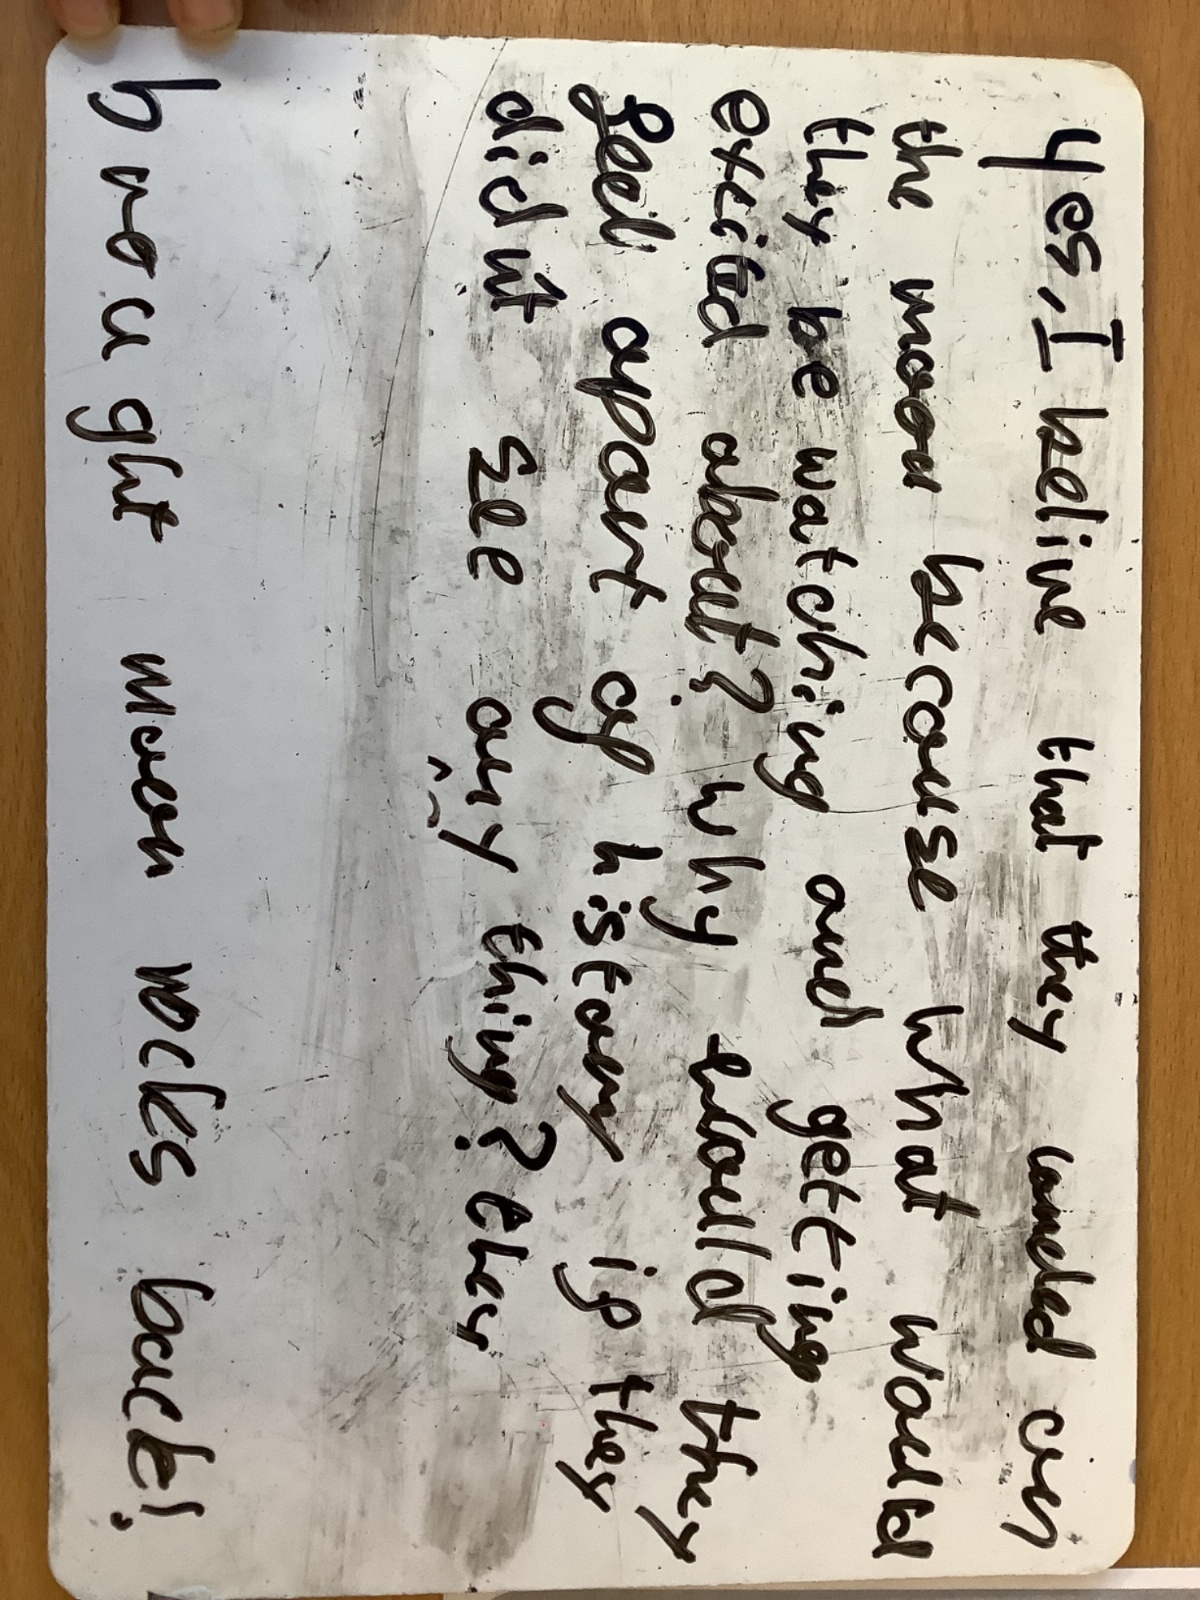 Yes, I belive that they landed on
the moon because what would
they be watching and getting
excited about? why would they
feel apart of history if they
didn't see any thing? they
brought moon rocks back!